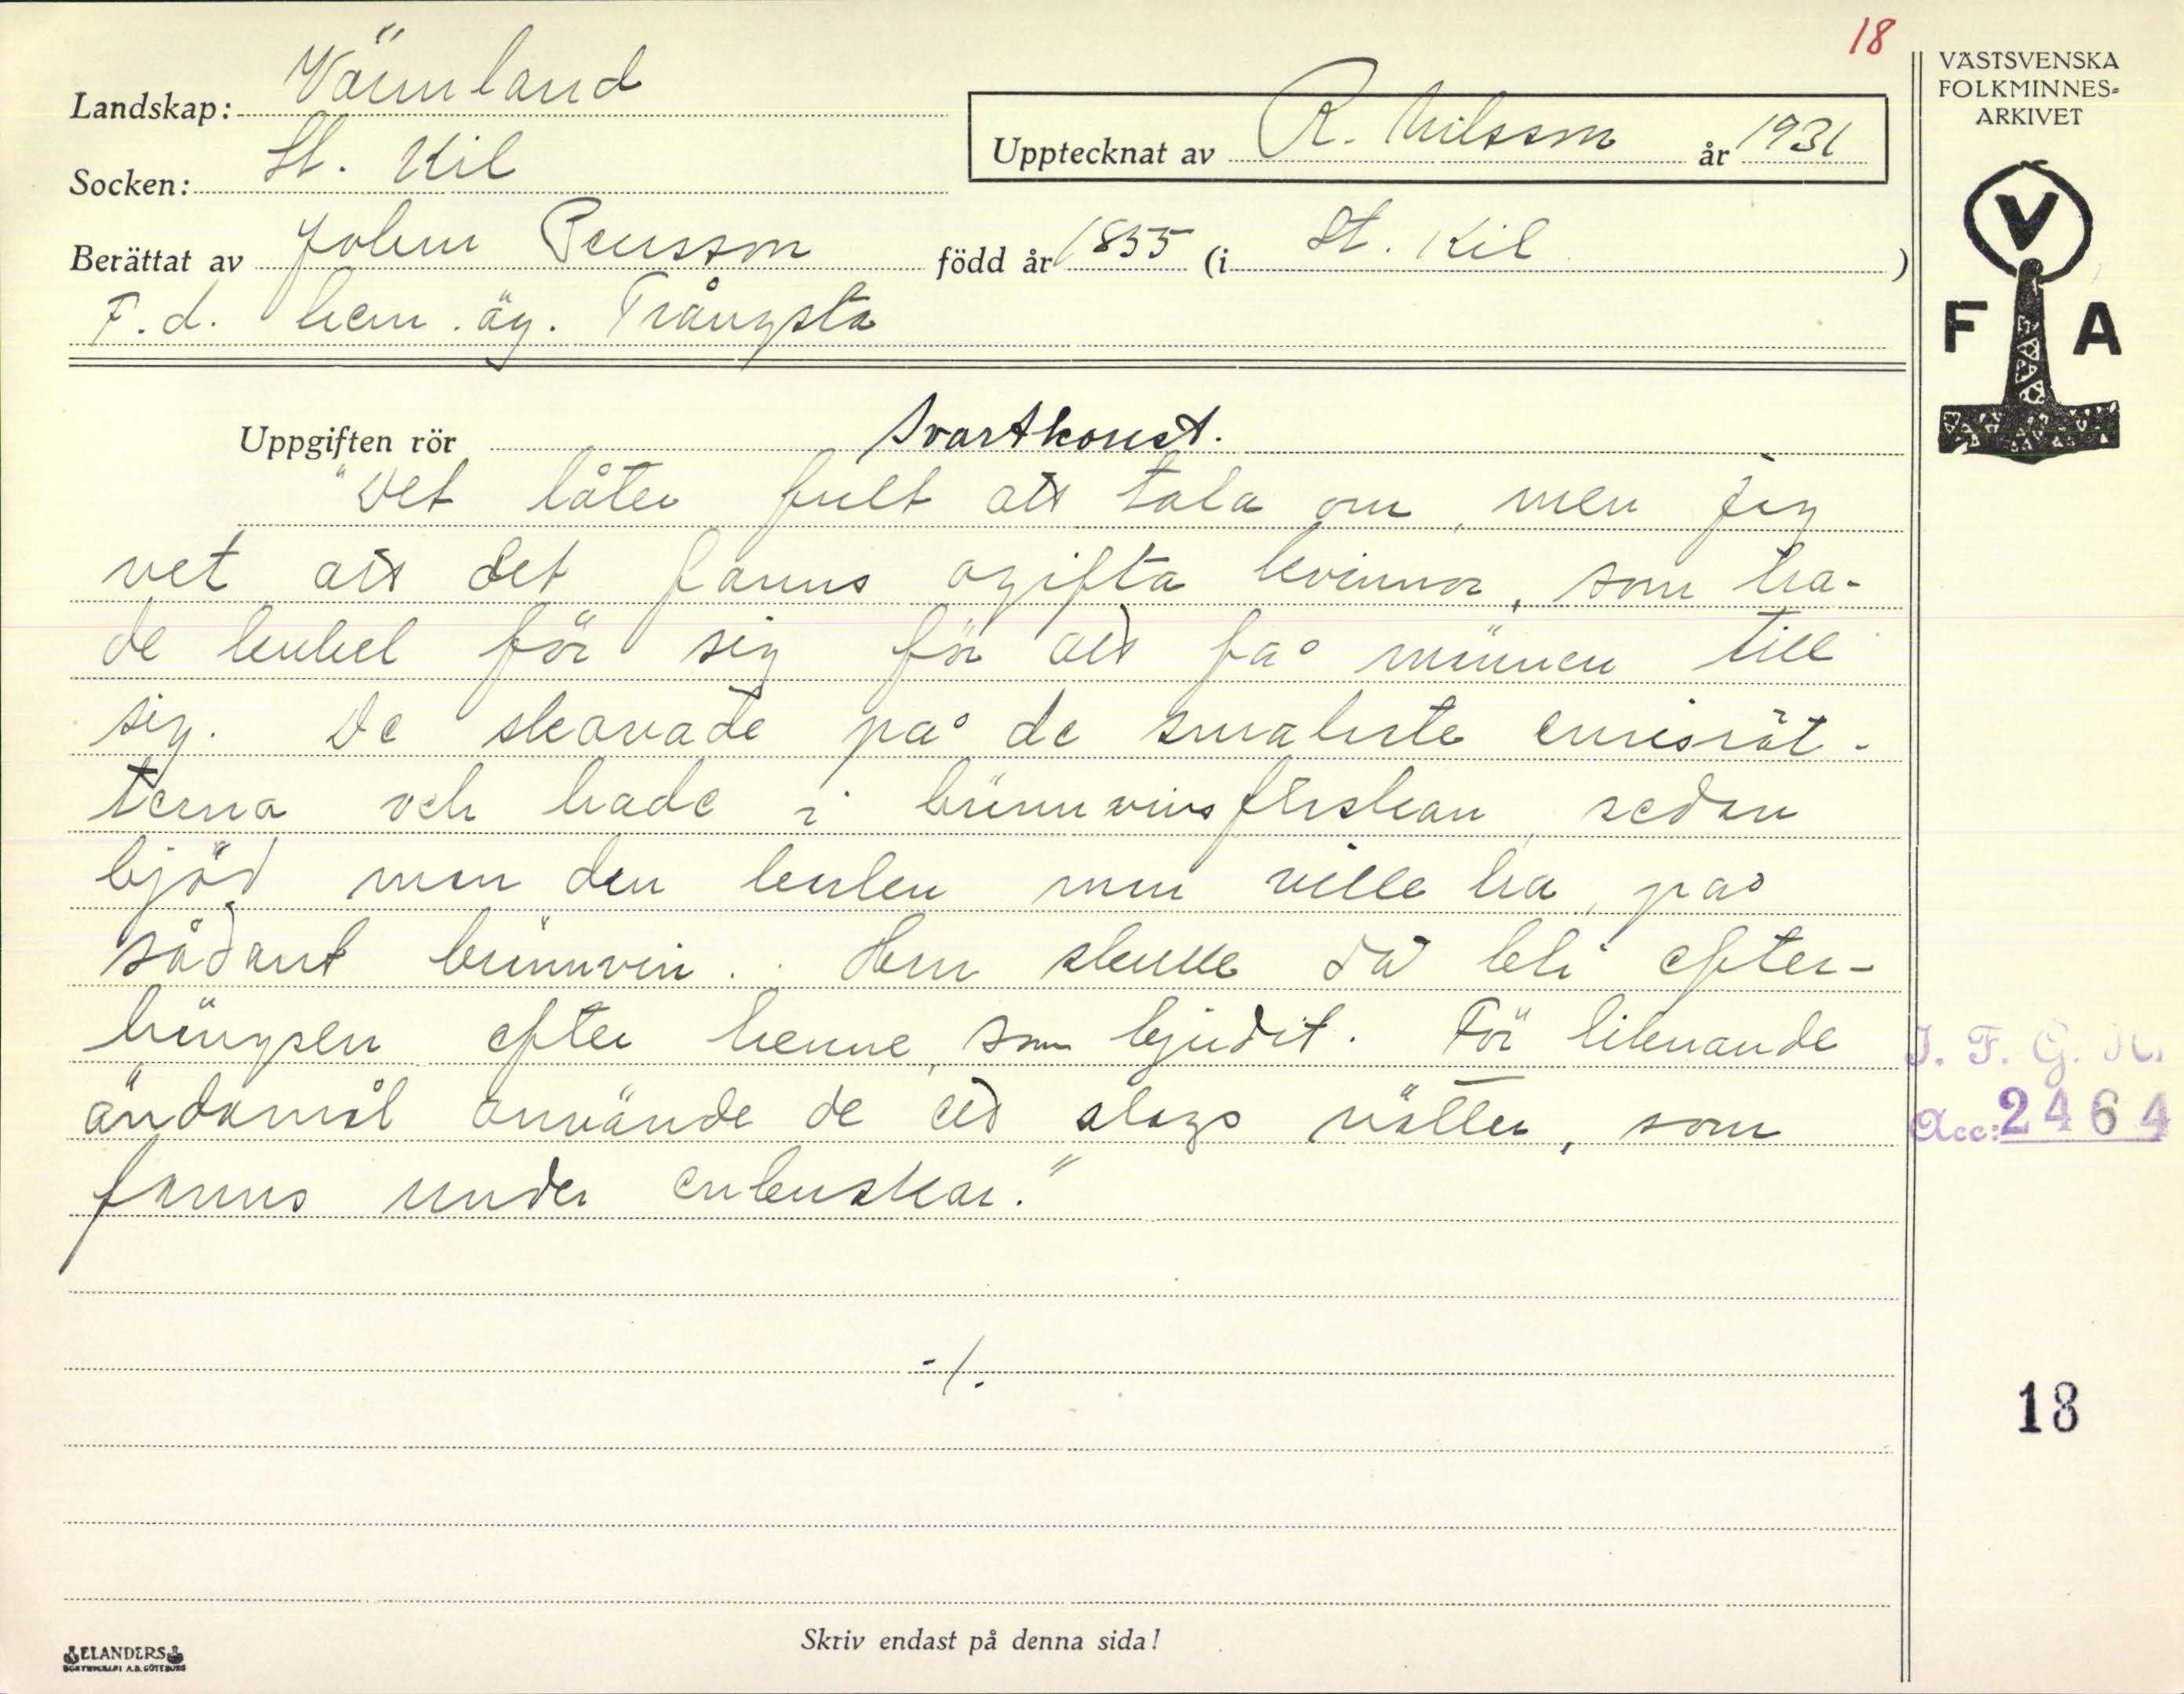 18
VÄSTSVENSKA
FOLKMINNES-
ARKIVET
Landskap: Värmland
Upptecknat av R. Nilsson år 1931
Socken: St. Kil
Berättat av John Persson född år 1855 (i St. Kil )
F.d. hem. äg. Trångsta
V
F A
Uppgiften rör Svartkonst.
"Det låter fult att tala om, men jag
vet att det fanns ogifta kvinnor, som ha-
de för sig för att få männen till
sig. De skavade på de smalaste enrisröt-
terna och hade i brännvinsflaskan, sedan
bjöd man den karlen man ville ha, på
sådant brännvin. Han skulle då bli efter-
hängsen efter henne, som bjudit. För liknande
ändamål använde de ett slags nötter, som
fanns under enbuskar."
-/.
I. F. G. H.
Acc: 2464
18
Skriv endast på denna sida!
ELANDERS
BOKTRYCKERI A.B. GÖTEBORG